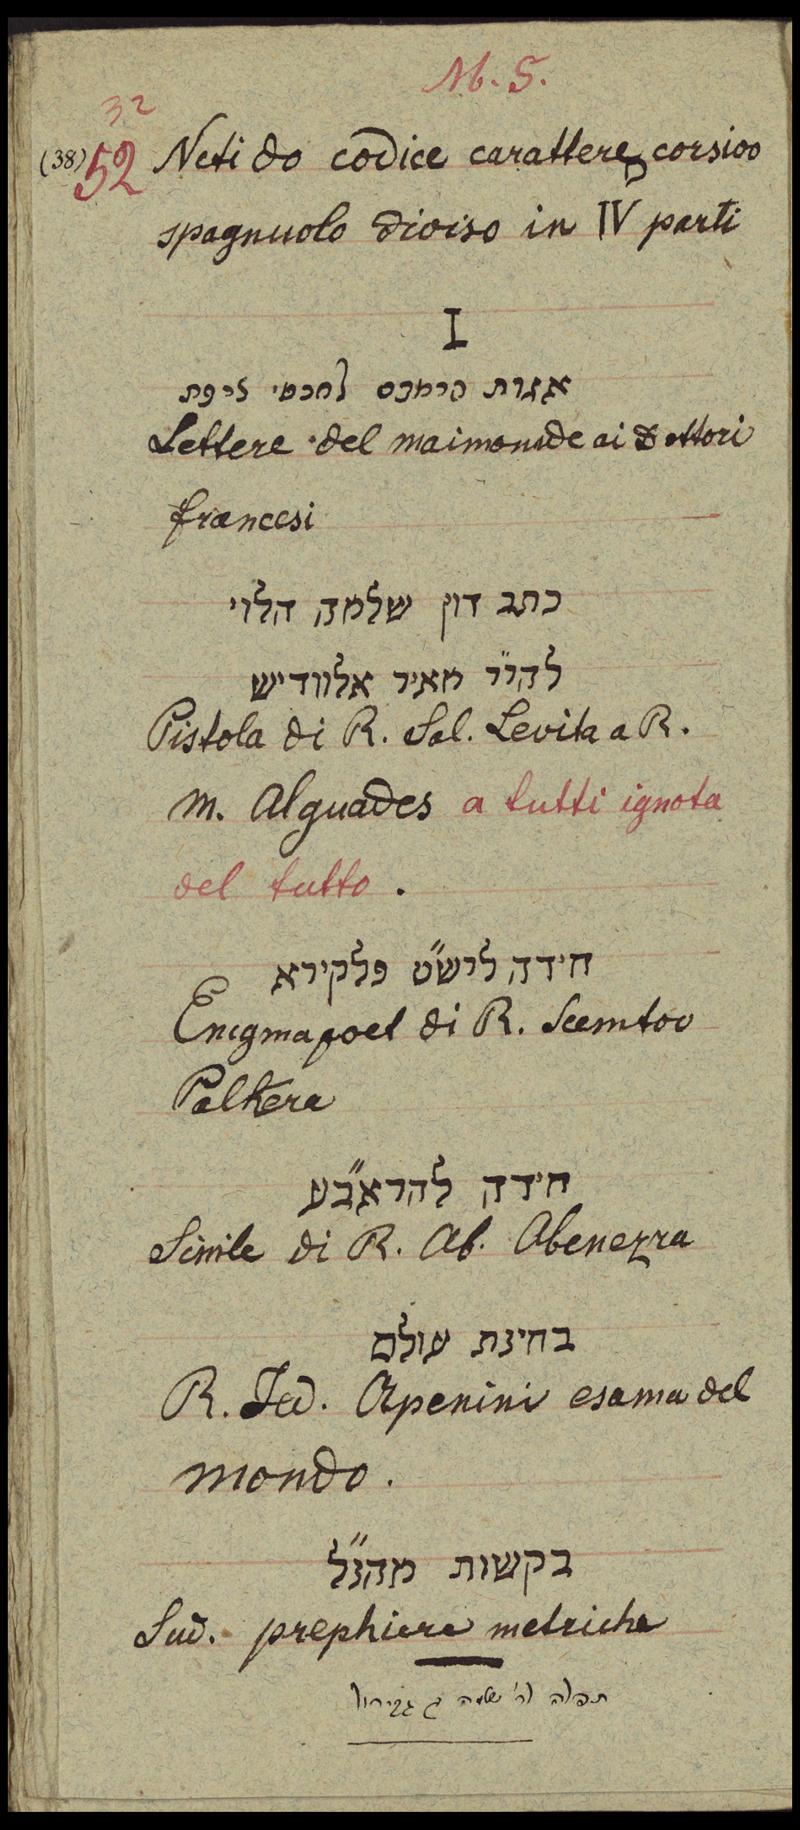 M. S.
32
(38) 52 Netido codice carattere corsivo
spagnuolo diviso in IV parti
I
אגרת הרמבם לחכמי צרפת
Lettere del maimonide ai Dottori
francesi
כתב דון שלמה הלוי
להר״ר מאיר אלוודיש
Pistola di R. Sal. Levita a R.
M. Alguades a tutti ignota
del tutto.
חידה לרש״ט פלקירא
Enigma poet di R. Scemtov
Palkera
חידה להרא״בע
Simile di R. Ab. Abenezra
בחינת עולם
R. Jed. Apenini esama del
mondo.
בקשות מהנ״ל
Sud. preghiere metriche
תפלה לר' שלמה ן גבירול